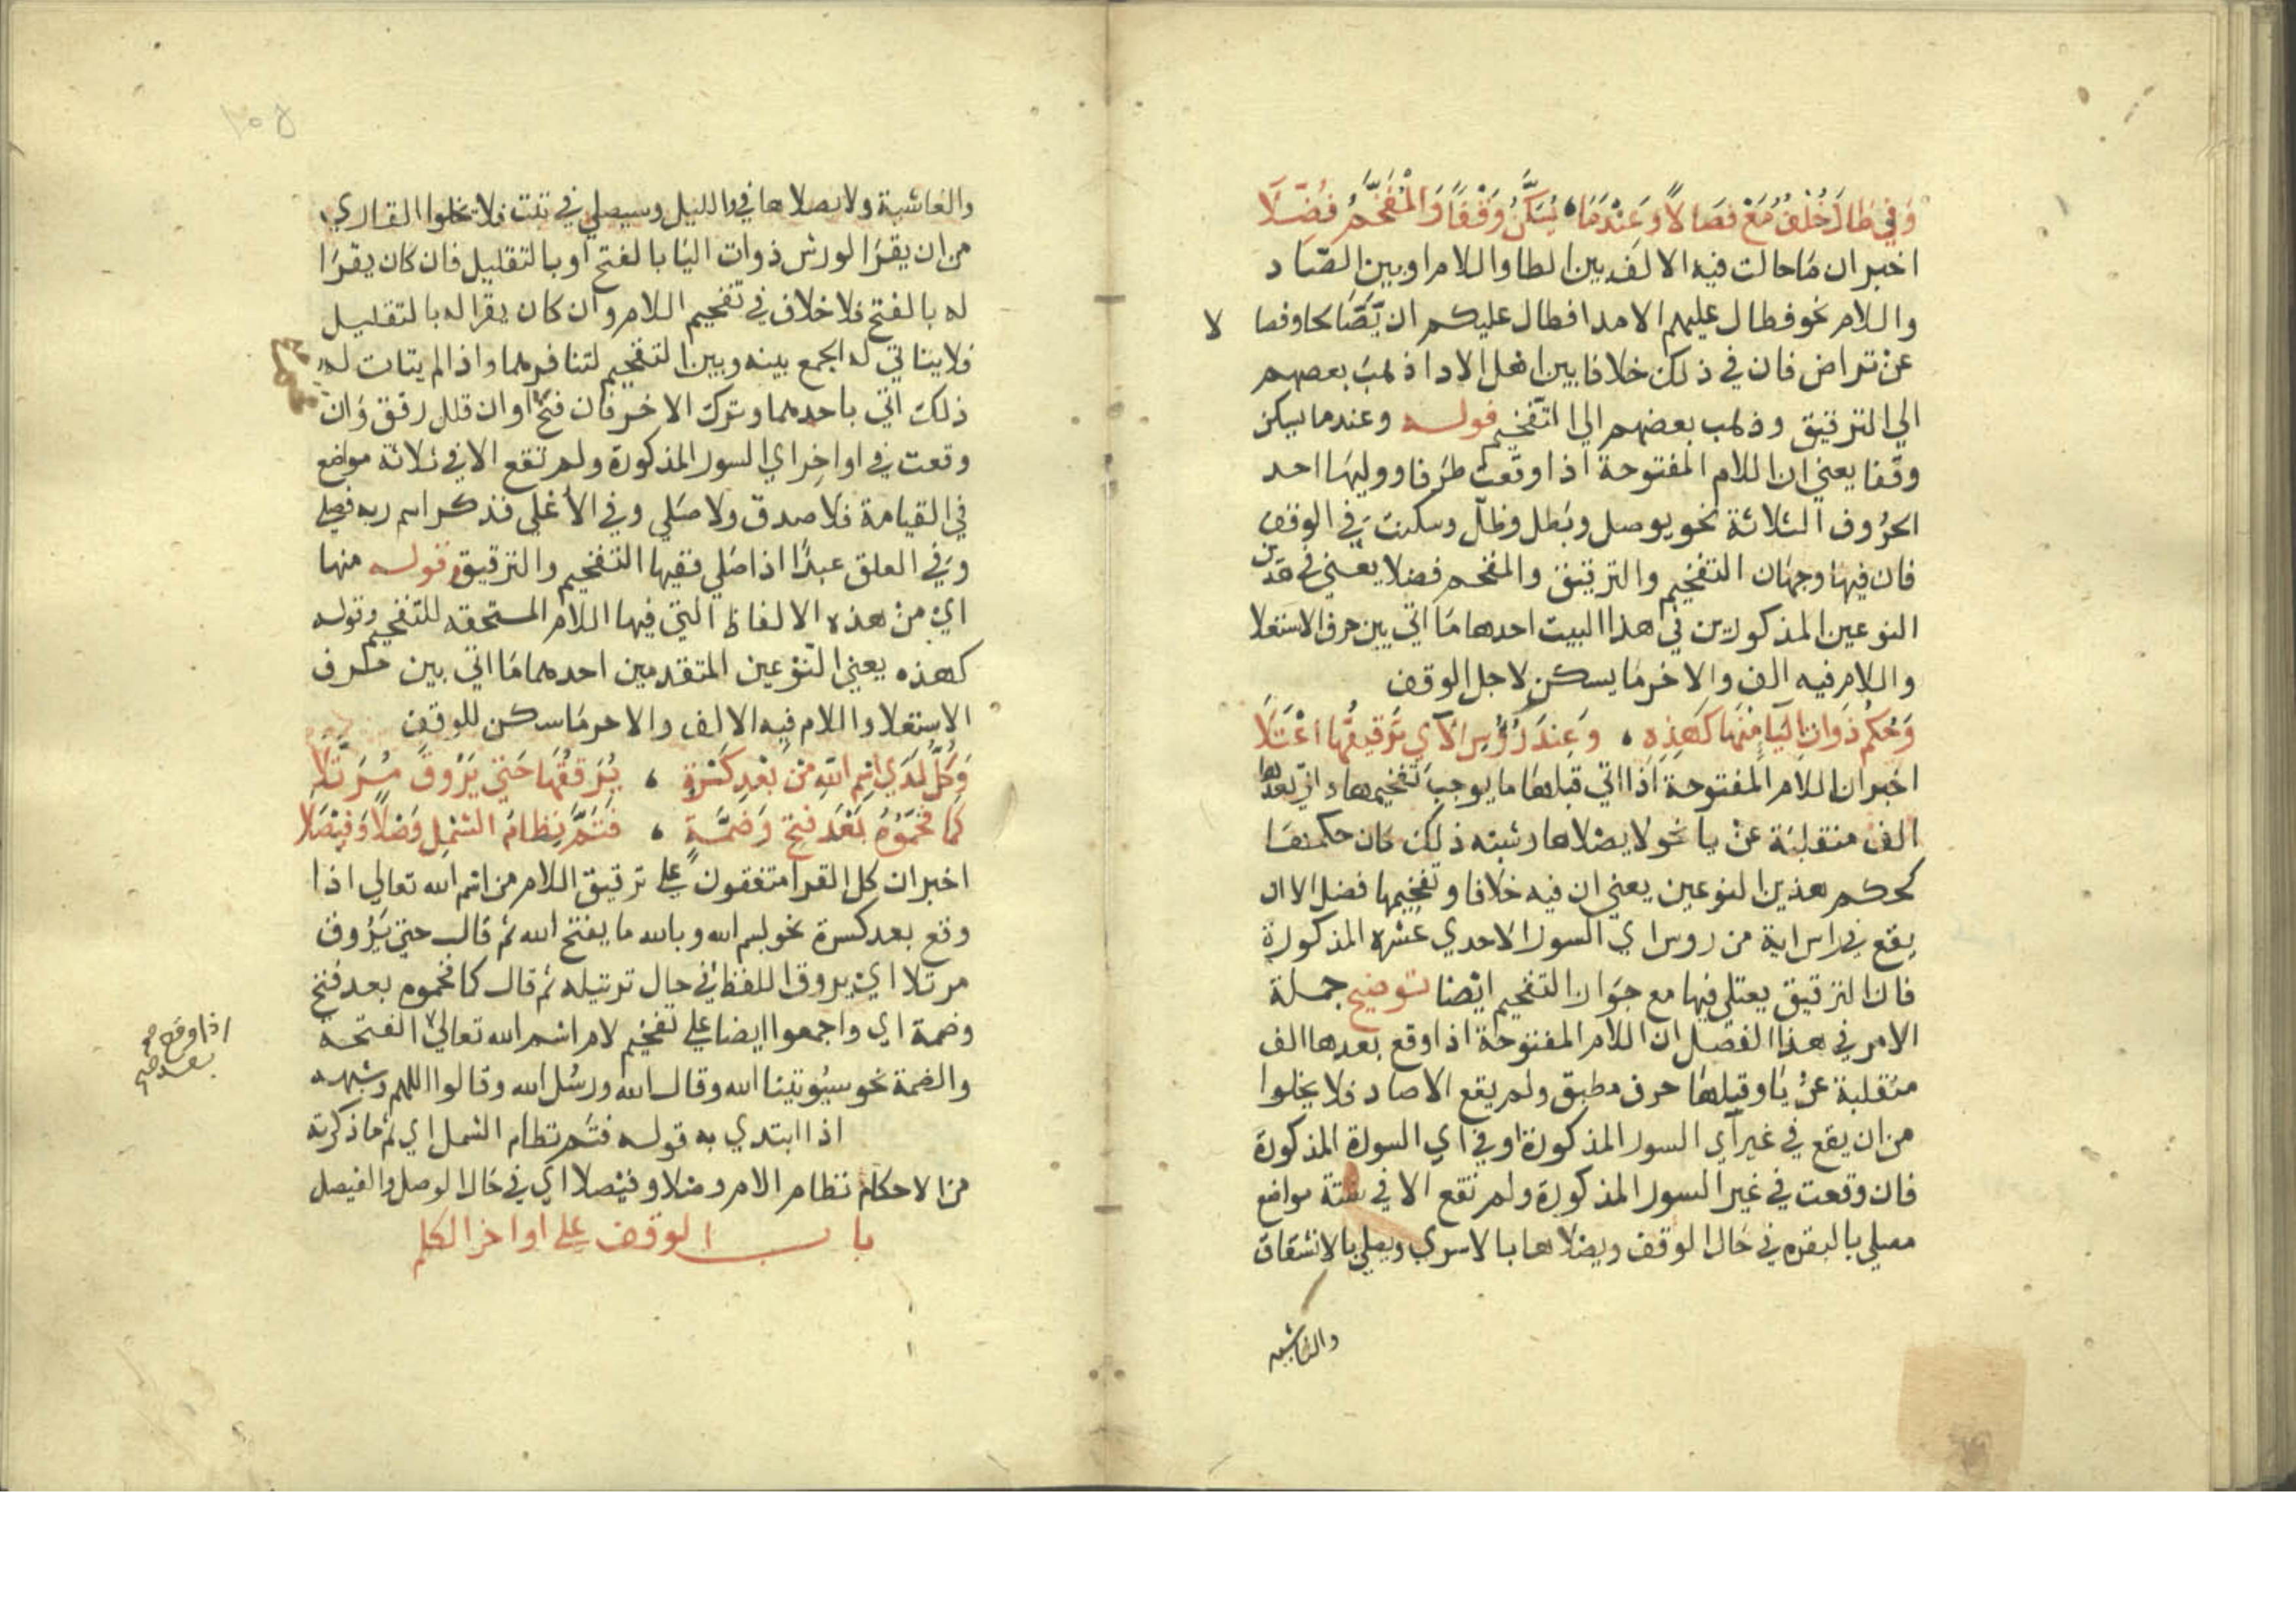 وَفِي طَالَ خُلْفٌ مَعْ فِصَالاً وَعِنْدَمَا ، يُسَكَّنُ وَقْفًا وَالْمُفَخَّمُ فُضِّلَا
اخبر ان ما حالت فيه الالف بين الطا واللام او بين الصاد
واللام نحو فطال عليهم الامد افطال عليكم ان يصّالحا وفصا لا
عن تراض فان في ذلك خلافا بين اهل الادا ذهب بعصهم
الي الترقيق وذهب بعضهم الي التفخيم قوله وعندما يسكن
وقفا يعني ان اللام المفتوحة اذا وقعت طرفا ووليها احد
الحروف الثلاثة نحو يوصل وبطل وظلّ وسكنت في الوقف
فان فيها وجهان التفخيم والترقيق والمفخم فضلا يعني في هذين
النوعين المذكورين في هذا البيت احدها ما اتي بين حرف الاستعلا
واللام فيه الف والاخر ما يسكن لاجل الوقف
وَحُكْمُ ذَوَاتِ اليَا مِنْهَا كَهَذِهِ ، وَعِنْدَ رُؤُسِ الآيِ تَرْقِيقُهَا اعْتَلَا
اخبر ان اللام المفتوحة اذا اتي قبلها ما يوجب تفخيمها واتي بعدها
الف منقلبة عن يا نحو لا يصلاها وشبه ذلك كان حكمها
كحكم هذين النوعين يعني ان فيه خلافا وتفخيمها فضل الا ان
يقع في راس اية من روس اي السور الاحدي عشره المذكورة
فان الترقيق يعتلي فيها مع جواز التفخيم ايضا توضيح جملة
الامر في هذا الفصل ان اللام المفتوحة اذا وقع بعدها الف
منقلبة عن يا وقبلها حرف مطبق ولم يقع الا صاد فلا يخلوا
من ان يقع في غير آي السور المذكورة او في اي السورة المذكورة
فان وقعت في غير السور المذكورة ولم تقع الا في ستة مواضع
مصلي بالبقره في حال الوقف ويصلاها بالاسري ويصلي بالانشقاق
والغاشية
والغاشية ولا يصلاها في والليل وسيصلي في تبت فلا يخلوا القاري
من ان يقرا لورش ذوات اليا بالفتح او بالتقليل فان كان يقرا
له بالفتح فلا خلاف في تفخيم اللام وان كان يقرا له بالتقليل
فلا يتاتي له الجمع بينه وبين التفخيم لتنافرهما واذا لم يتات له
ذلك اتي باحدهما وترك الاخر فان فتح او ان قلل رقق وان
وقعت في اواخر اي السور المذكورة ولم تقع الا في ثلاثة مواضع
في القيامة فلا صدق ولا صلي وفي الأعلي فذكر اسم ربه فصلي
وفي العلق عبدًا اذا صلي ففيها التفخيم والترقيق وقوله منها
اي من هذه الالفاظ التي فيها اللام المستحقه للتفخيم وقوله
كهذه يعني النوعين المتقدمين احدهما ما اتي بين حرف
الاستعلا واللام فيه الالف والاخر ما سكن للوقف
وَكُلٌّ لَدَي اسْمِ اللهِ مِنْ بَعْدِ كَسْرَةٍ ، يُرَقِّقُهَا حَتَّي يَرُوقَ مُرَتَّلَا
كَمَا فَخَّمُوهُ بَعْدَ فَتْحٍ وَضَمَّةٍ ، فَتَمَّ نِظَامُ الشَّمْلِ وَصْلاً وَفَيْصَلَا
اخبر ان كل القرا متفقون علي ترقيق اللام من اسم الله تعالي اذا
وقع بعد كسرة نحو بسم الله وبالله ما يفتح الله ثم قال حتي يَرُوق
مرتلا اي يروق اللفظ في حال ترتيله ثم قال كما فخموه بعد فتح
وضمة اي واجمعوا ايضا علي تفخيم لام اسم الله تعالي الفتحة
اذا وقع بعد
والضمة نحو سيؤتينا الله وقال الله ورسل الله وقالوا اللهم وشبهه
اذا ابتدي به قوله فتم نظام الشمل اي تم ما ذكرته
من الاحكام نظام الامر وصلا وفيصلا اي في حال الوصل والفيصل
باب الوقف علي اواخر الكلم